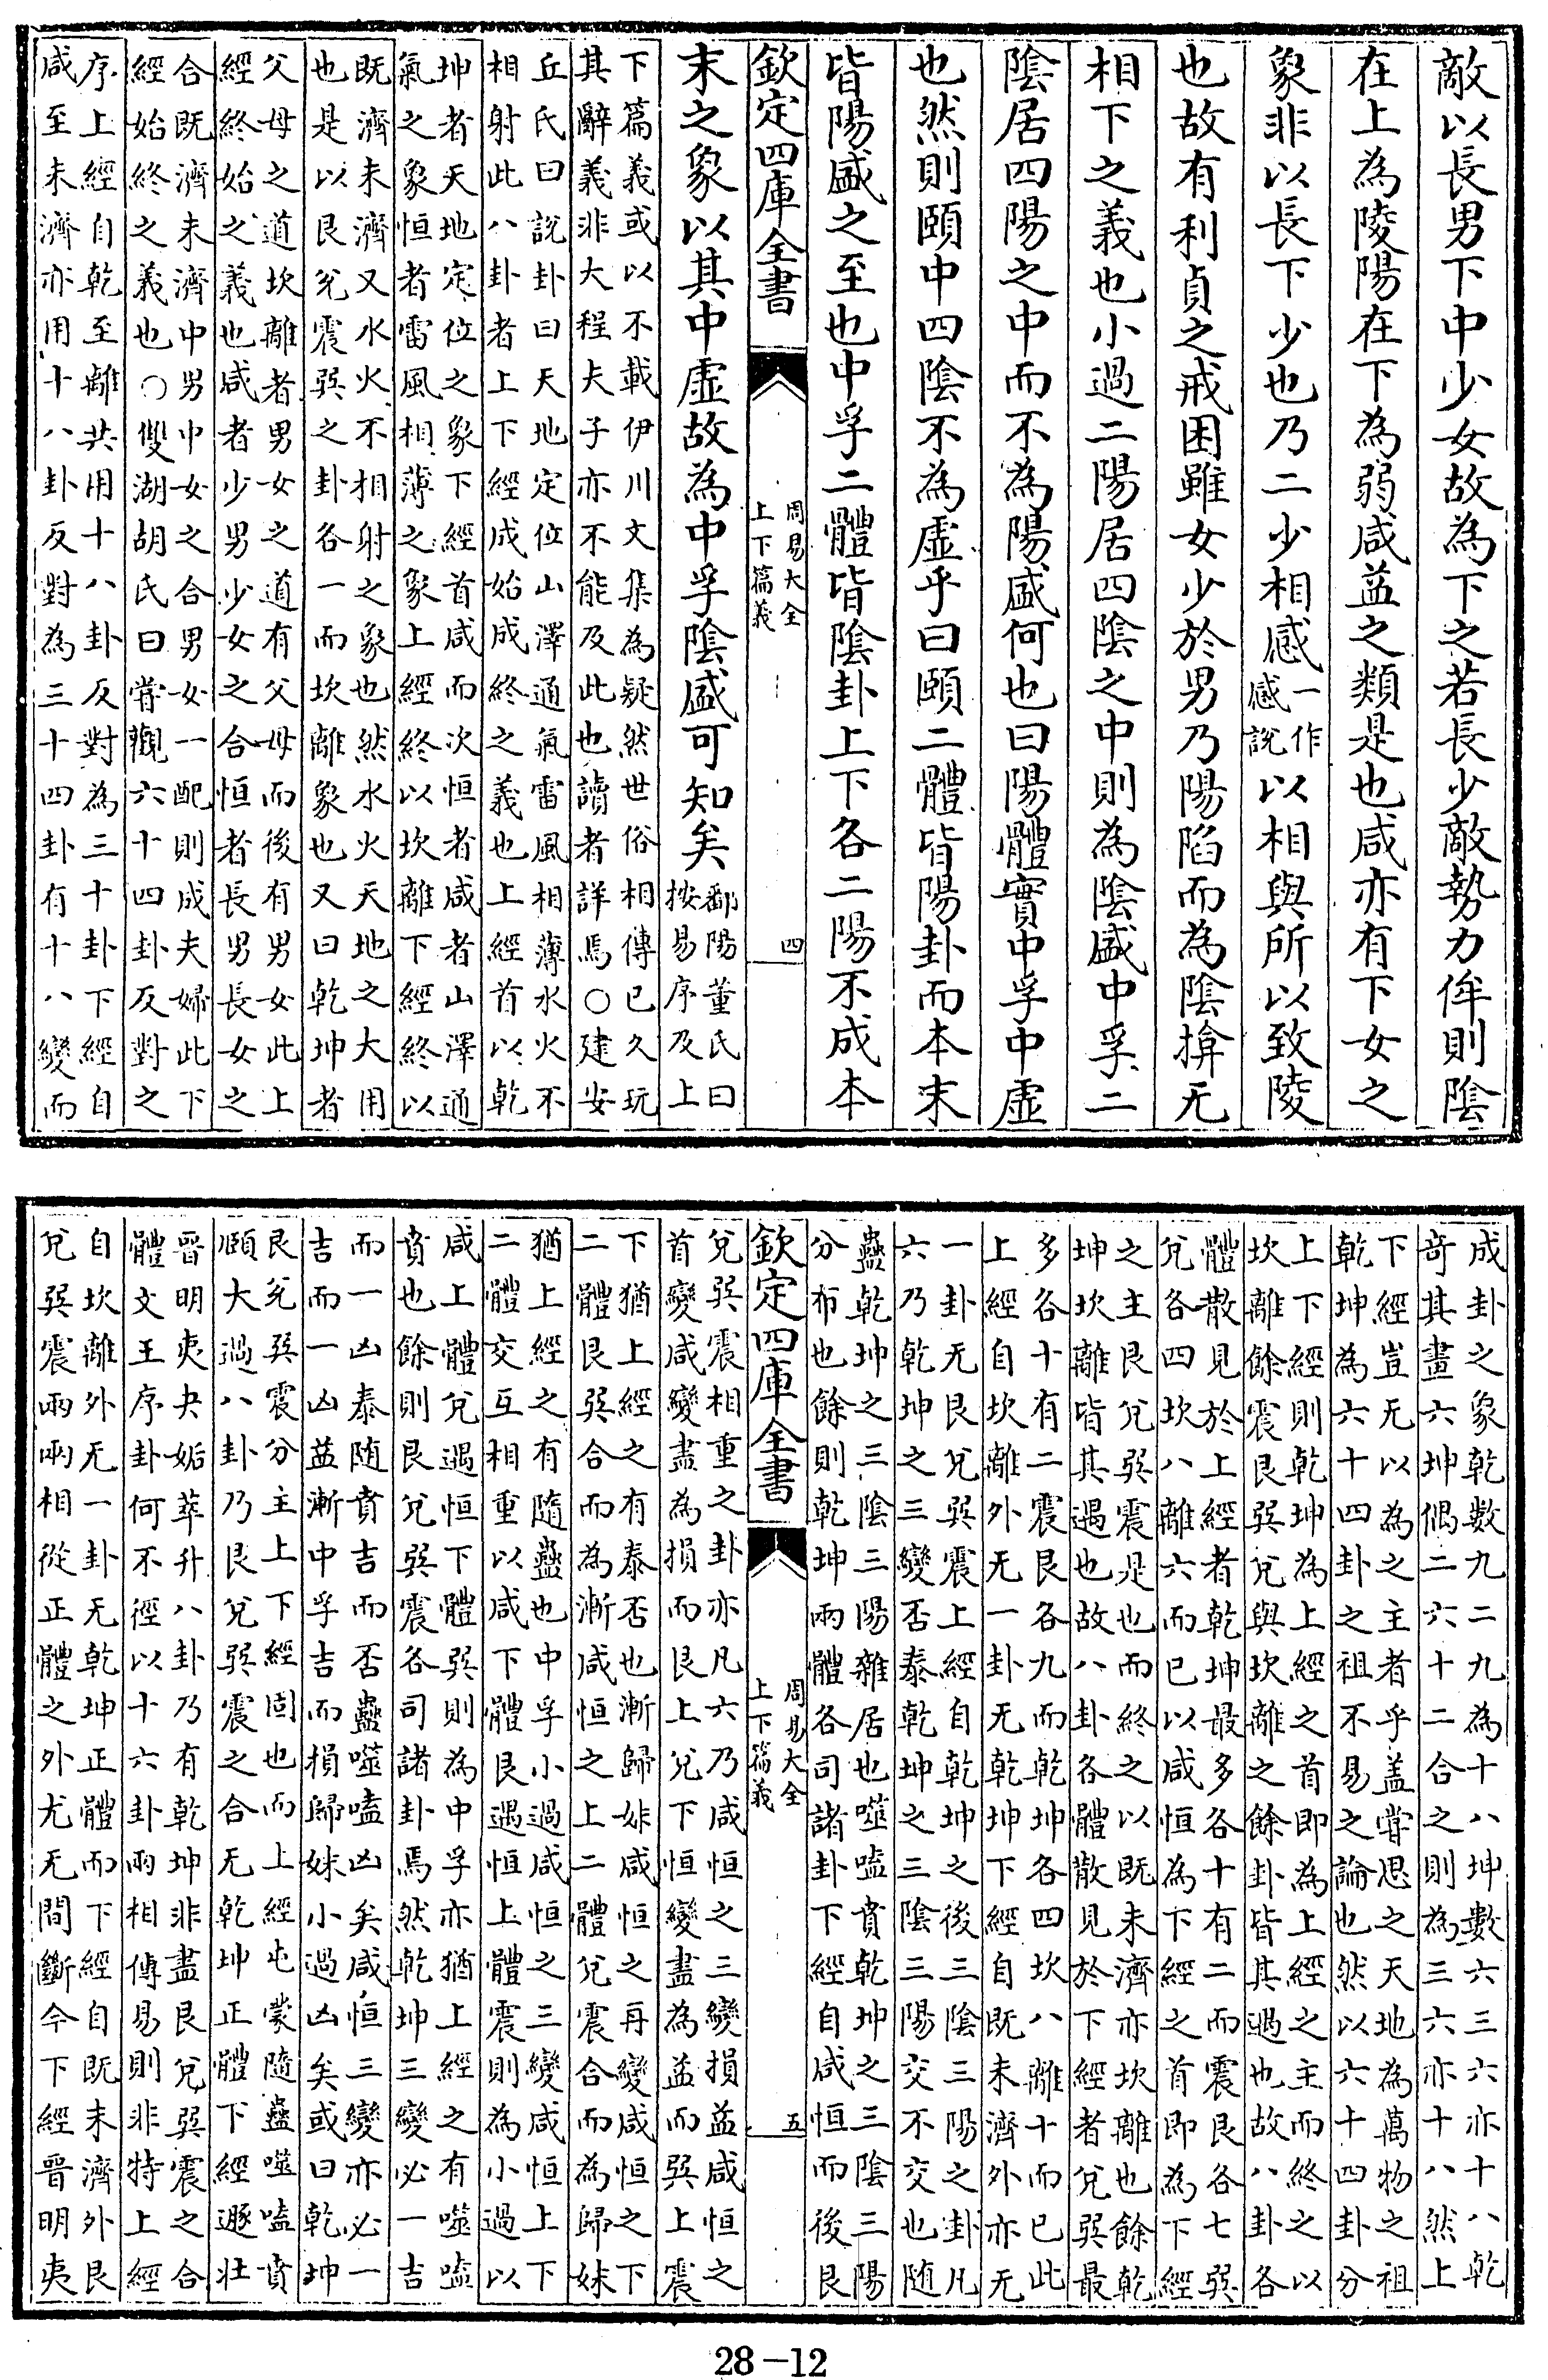 敵以長男下中少女故為下之若長少敵勢力侔則隂
在上為陵陽在下為弱咸益之類是也咸亦有下女之
象非以長下少也乃二少相感一作感說以相與所以致陵
也故有利貞之戒困雖女少於男乃陽陷而為隂揜无
相下之義也小過二陽居四隂之中則為隂盛中孚二
隂居四陽之中而不為陽盛何也曰陽體實中孚中虛
也然則頤中四隂不為虛乎曰頤二體皆陽卦而本末
皆陽盛之至也中孚二體皆隂卦上下各二陽不成本
欽定四庫全書
周易大全
上下篇義
四
末之象以其中虛故為中孚隂盛可知矣鄱陽董氏曰按易序及上
下篇義或以不載伊川文集為疑然世俗相傳已久玩
其辭義非大程夫子亦不能及此也讀者詳焉○建安
丘氏曰說卦曰天地定位山澤通氣雷風相薄水火不
相射此八卦者上下經成始成終之義也上經首以乾
坤者天地定位之象下經首咸而次恒者咸者山澤通
氣之象恒者雷風相薄之象上經終以坎離下經終以
既濟未濟又水火不相射之象也然水火天地之大用
也是以艮兊震巽之卦各一而坎離象也又曰乾坤者
父母之道坎離者男女之道有父母而後有男女此上
經終始之義也咸者少男少女之合恒者長男長女之
合既濟未濟中男中女之合男女一配則成夫婦此下
經始終之義也○雙湖胡氏曰嘗觀六十四卦反對之
序上經自乾至離共用十八卦反對為三十卦下經自
咸至未濟亦用十八卦反對為三十四卦有十八變而
成卦之象乾數九二九為十八坤數六三六亦十八乾
竒其畫六坤偶二六十二合之則為三六亦十八然上
下經豈无以為之主者乎盖嘗思之天地為萬物之祖
乾坤為六十四卦之祖不易之論也然以六十四卦分
上下經則乾坤為上經之首即為上經之主而終之以
坎離餘震艮巽兊與坎離之餘卦皆其遇也故八卦各
體散見於上經者乾坤最多各十有二而震艮各七巽
兊各四坎八離六而已以咸恒為下經之首即為下經
之主艮兊巽震是也而終之以既未濟亦坎離也餘乾
坤坎離皆其遇也故八卦各體散見於下經者兊巽最
多各十有二震艮各九而乾坤各四坎八離十而已此
上經自坎離外无一卦无乾坤下經自既未濟外亦无
一卦无艮兊巽震上經自乾坤之後三隂三陽之卦凡
六乃乾坤之三變否泰乾坤之三隂三陽交不交也随
蠱乾坤之三隂三陽雜居也噬嗑賁乾坤之三隂三陽
分布也餘則乾坤兩體各司諸卦下經自咸恒而後艮
欽定四庫全書
周易大全
上下篇義
五
兊巽震相重之卦亦凡六乃咸恒之三變損益咸恒之
首變咸變盡為損而艮上兊下恒變盡為益而巽上震
下猶上經之有泰否也漸歸妹咸恒之再變咸恒之下
二體艮巽合而為漸咸恒之上二體兊震合而為歸妹
猶上經之有隨蠱也中孚小過咸恒之三變咸恒上下
二體交互相重以咸下體艮遇恒上體震則為小過以
咸上體兊遇恒下體巽則為中孚亦猶上經之有噬嗑
賁也餘則艮兊巽震各司諸卦焉然乾坤三變必一吉
而一凶泰随賁吉而否蠱噬嗑凶矣咸恒三變亦必一
吉而一凶益漸中孚吉而損歸妹小過凶矣或曰乾坤
艮兊巽震分主上下經固也而上經屯蒙隨蠱噬嗑賁
頤大過八卦乃艮兊巽震之合无乾坤正體下經遯壯
晉明夷夬姤萃升八卦乃有乾坤非盡艮兊巽震之合
體文王序卦何不徑以十六卦兩相傳易則非特上經
自坎離外无一卦无乾坤正體而下經自既未濟外艮
兊巽震兩兩相從正體之外尤无間斷今下經晉明夷
28-12